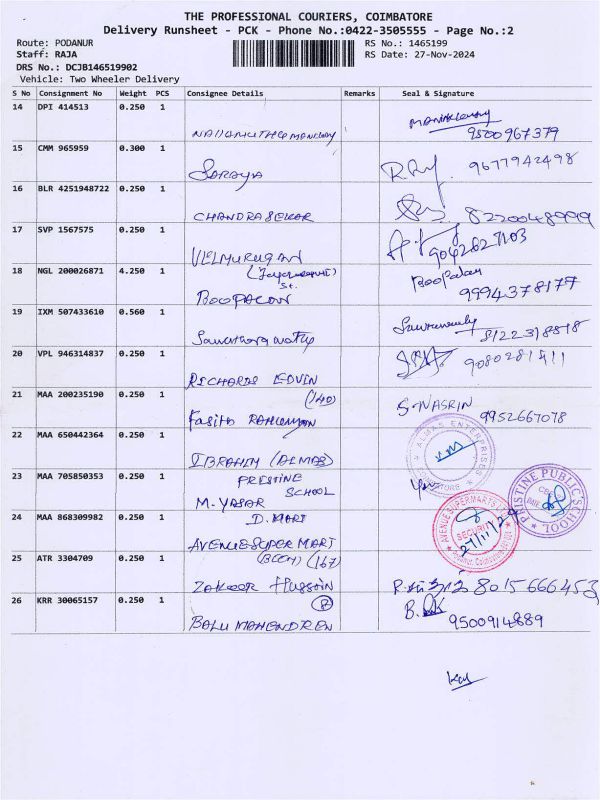 THE PROFESSIONAL COURIERS, COIMBATORE
Delivery Runsheet - PCK - Phone No.:0422-3505555 - Page No.:2
Route: PODANUR RS No.: 1465199
Staff: RAJA RS Date: 27-Nov-2024
DRS No.: DCJB146519902
Vehicle: Two Wheeler Delivery
S No Consignment No Weight PCS Consignee Details Remarks Seal & Signature
14 DPI 414513 0.250 1
9500967379
15 CMM 965959 0.300 1
SARAYA 9677942498
16 BLR 4251948722 0.250 1
CHANDRASEKAR 8220048999
17 SVP 1567575 0.250 1
VELMURUGAN 9042827103
18 NGL 200026871 4.250 1
St.
BOOPALAN Boopalan 9994378177
19 IXM 507433610 0.560 1
8122318818
20 VPL 946314837 0.250 1
RICHARDS EDVIN 9080281411
21 MAA 200235190 0.250 1
(140)
Fasith RAHUMAN S-NASRIN 9952667078
22 MAA 650442364 0.250 1
IBRAHIM (ALMAS) ALMAS ENTERPRISES
23 MAA 705850353 0.250 1
PRISTINE
SCHOOL
M. YASAR PRISTINE PUBLIC SCHOOL
24 MAA 868309982 0.250 1
D. MART
AVENUE SUPER MART AVENUE SUPERMARTS
SECURITY
27/11/24
25 ATR 3304709 0.250 1
(167)
ZAKEER HUSSAIN 8015666453
26 KRR 30065157 0.250 1
BALU MAHENDREN 9500914889